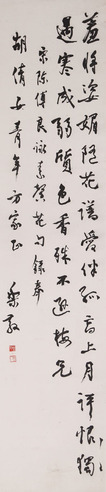 羞将姿媚随花谱爱伴孤高上月评怅独
遇寒成弱质色香殊不避梅兄
宋陈傅良咏素馨花句录奉
胡倩女青年方家正